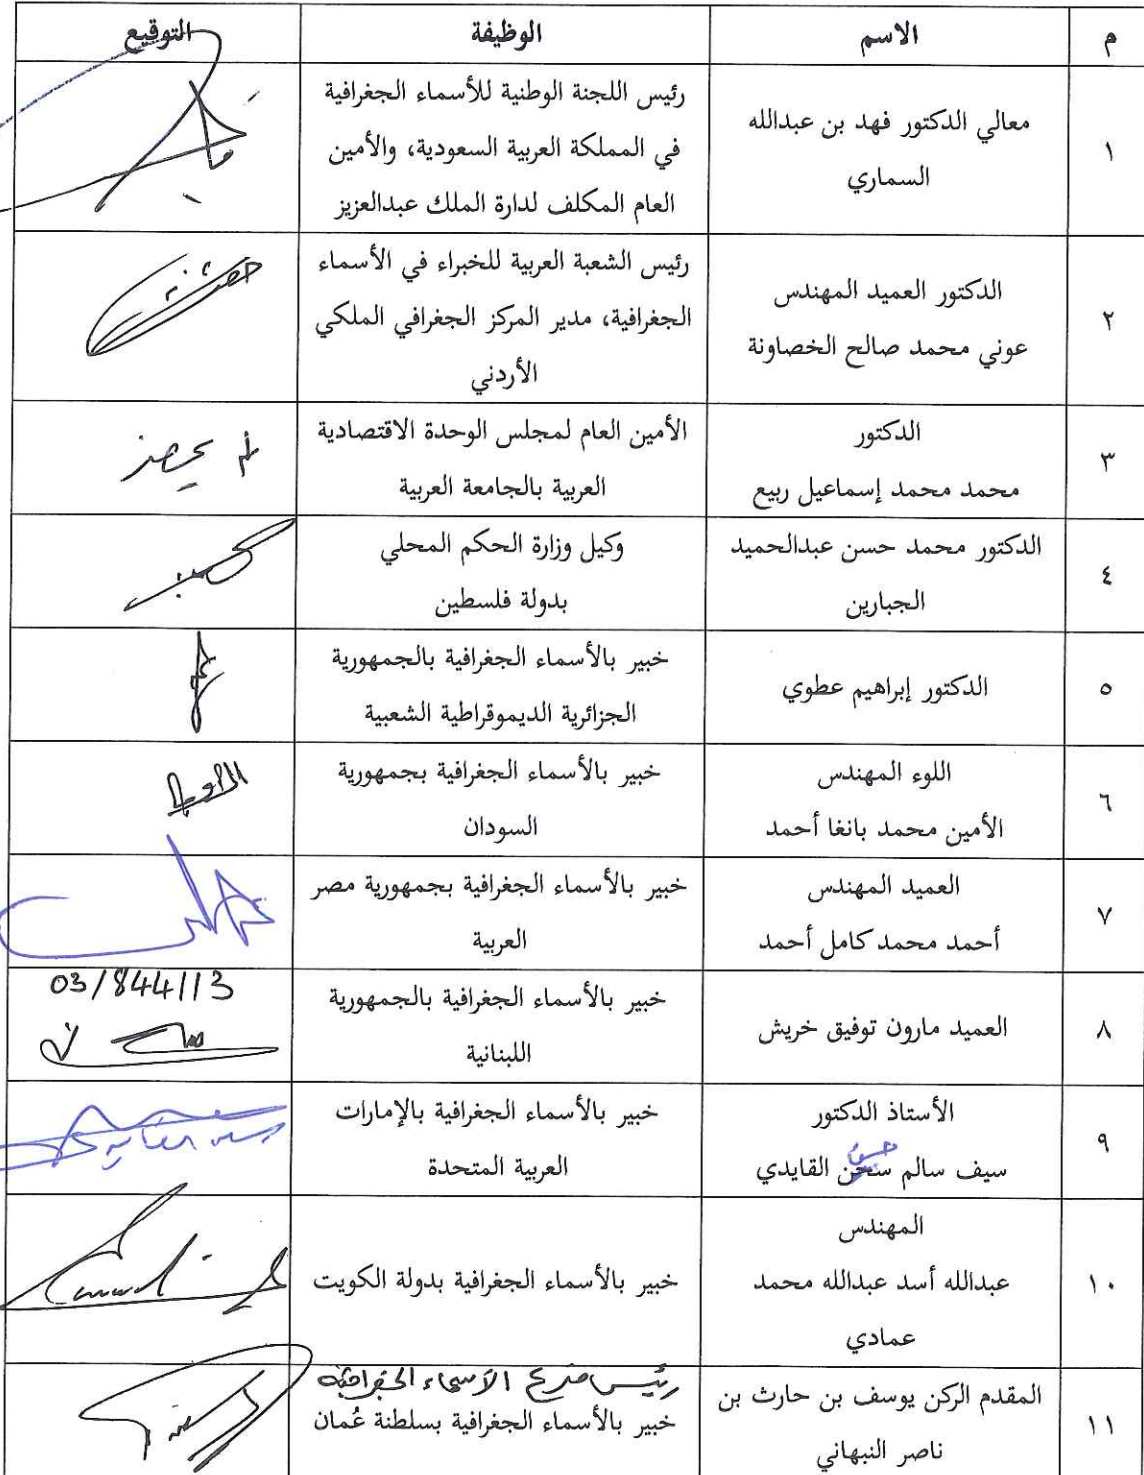 م الاسم الوظيفة التوقيع
١ معالي الدكتور فهد بن عبدالله
السماري
رئيس اللجنة الوطنية للأسماء الجغرافية
في المملكة العربية السعودية، والأمين
العام المكلف لدارة الملك عبدالعزيز
٢ الدكتور العميد المهندس
عوني محمد صالح الخصاونة
رئيس الشعبة العربية للخبراء في الأسماء
الجغرافية، مدير المركز الجغرافي الملكي
الأردني
٣ الدكتور
محمد محمد إسماعيل ربيع
الأمين العام لمجلس الوحدة الاقتصادية
العربية بالجامعة العربية
لم يحضر
٤ الدكتور محمد حسن عبدالحميد
الجبارين
وكيل وزارة الحكم المحلي
بدولة فلسطين
٥ الدكتور إبراهيم عطوي
خبير بالأسماء الجغرافية بالجمهورية
الجزائرية الديموقراطية الشعبية
٦ اللوء المهندس
الأمين محمد بانغا أحمد
خبير بالأسماء الجغرافية بجمهورية
السودان
٧ العميد المهندس
أحمد محمد كامل أحمد
خبير بالأسماء الجغرافية بجمهورية مصر
العربية
٨ العميد مارون توفيق خريش
خبير بالأسماء الجغرافية بالجمهورية
اللبنانية
03/844113
٩ الأستاذ الدكتور
سيف سالم سحن القايدي
خبير بالأسماء الجغرافية بالإمارات
العربية المتحدة
١٠ المهندس
عبدالله أسد عبدالله محمد
عمادي
خبير بالأسماء الجغرافية بدولة الكويت
١١ المقدم الركن يوسف بن حارث بن
ناصر النبهاني
رئيس فرع الأسماء الجغرافية
خبير بالأسماء الجغرافية بسلطنة عُمان